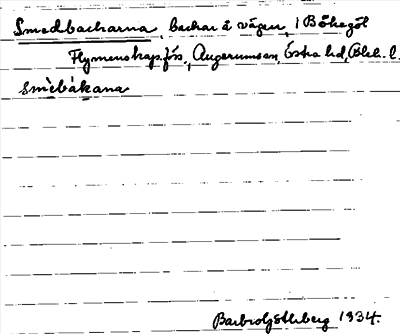 Smedbackarna, backar å vägen, i Bökegöl
Flymenskap.fös., Augerumssn, Östra hd, Blek. l.
smèbákana
Barbro Götlberg 1934.